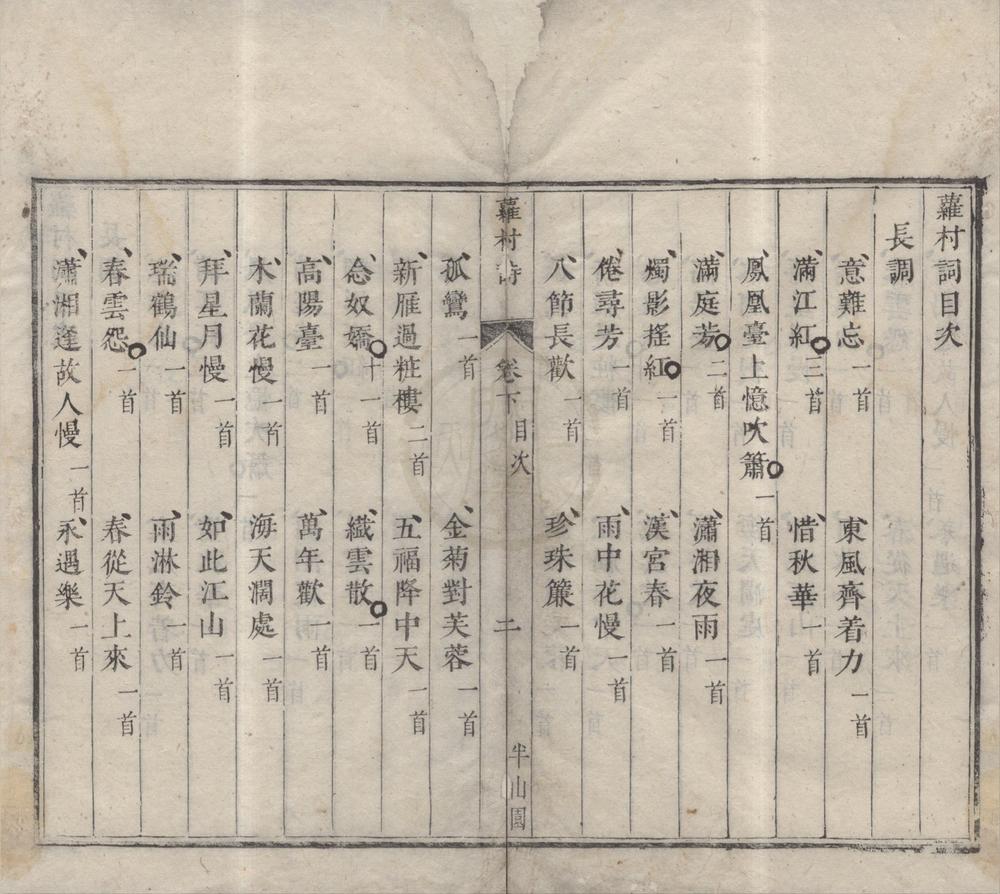 蘿村詞目次
長調
意難忘一首 東風齊着力一首
滿江紅三首 惜秋華一首
鳳凰臺上憶吹簫一首
滿庭芳二首 瀟湘夜雨一首
燭影搖紅一首 漢宮春一首
倦尋芳一首 雨中花慢一首
八節長歡一首 珍珠簾一首
蘿村詩 卷下 目次 二 半山園
孤鸞一首 金菊對芙蓉一首
新雁過粧樓二首 五福降中天一首
念奴嬌十一首 纖雲散一首
高陽臺一首 萬年歡一首
木蘭花慢一首 海天濶處一首
拜星月慢一首 如此江山一首
瑞鶴仙一首 雨淋鈴一首
春雲怨一首 春從天上來一首
瀟湘逢故人慢一首 永遇樂一首